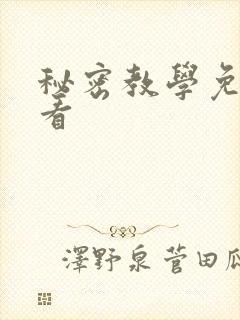 秘密教學免
看
澤野泉菅田瓜